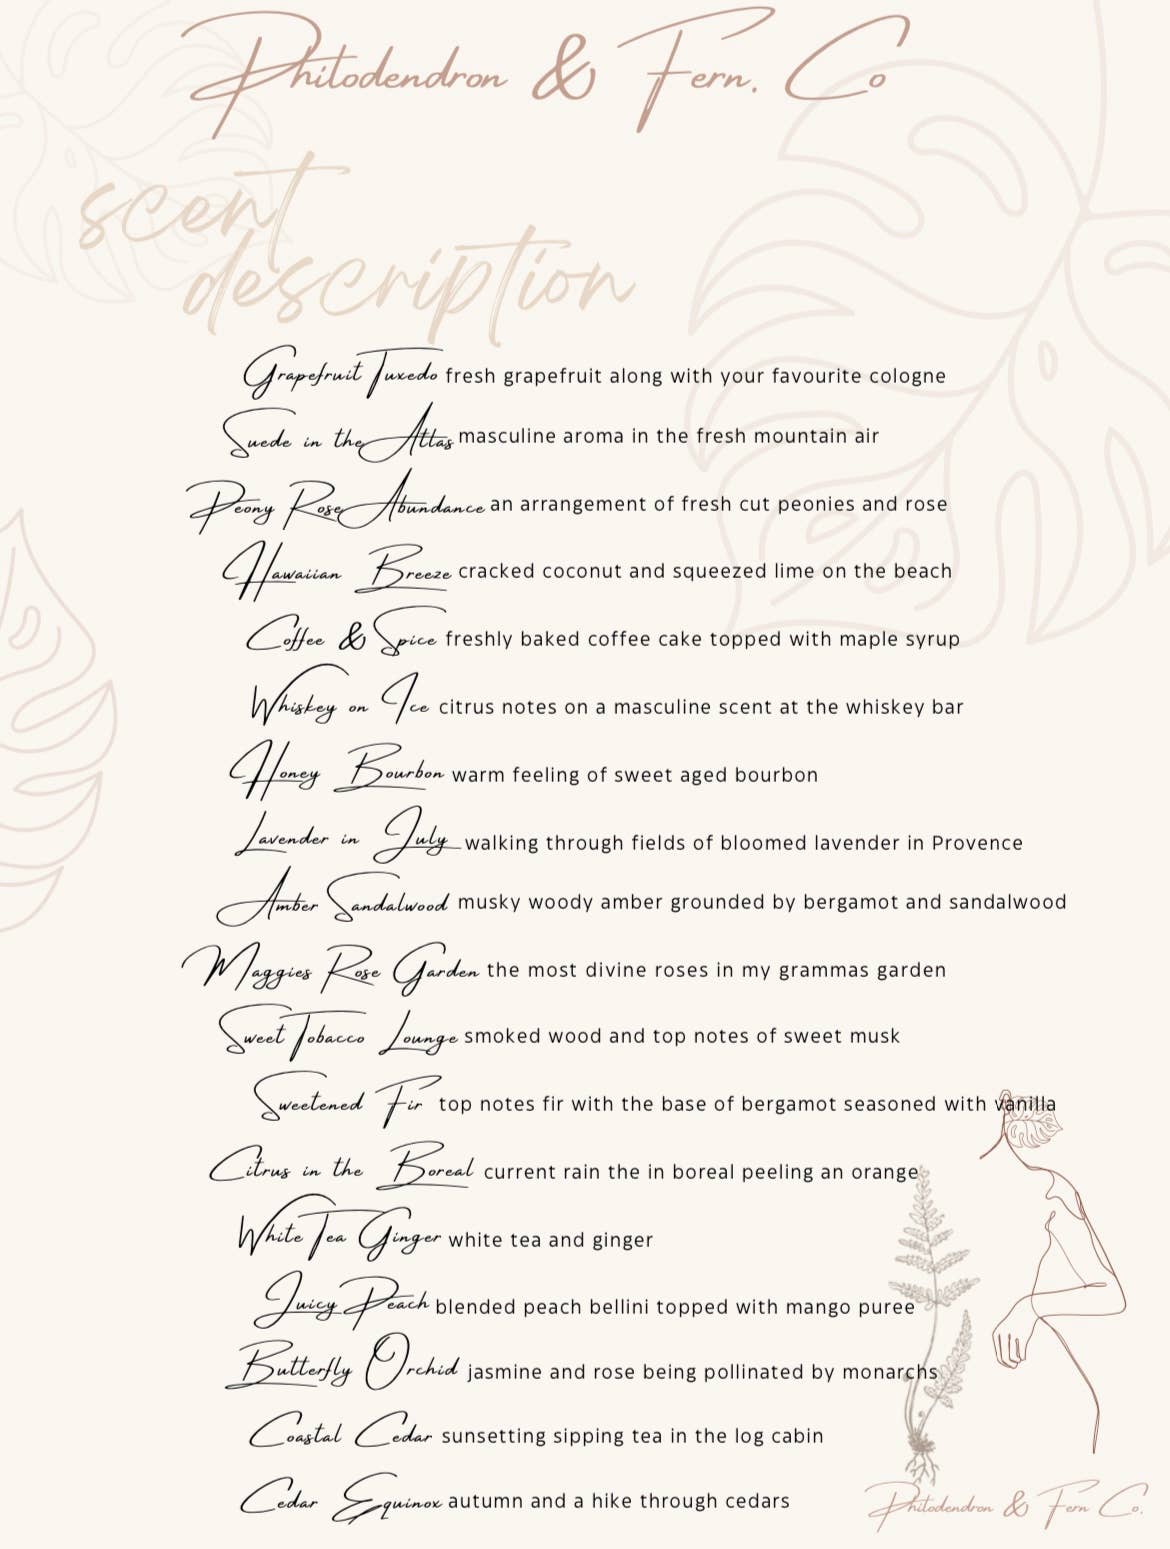 Philodendron & Fern. Co
scent
description
Grapefruit Tuxedo fresh grapefruit along with your favourite cologne
Suede in the Attas masculine aroma in the fresh mountain air
Peony Rose Abundance an arrangement of fresh cut peonies and rose
Hawaiian Breeze cracked coconut and squeezed lime on the beach
Coffee & Spice freshly baked coffee cake topped with maple syrup
Whiskey on Ice citrus notes on a masculine scent at the whiskey bar
Honey Bourbon warm feeling of sweet aged bourbon
Lavender in July walking through fields of bloomed lavender in Provence
Amber Sandalwood musky woody amber grounded by bergamot and sandalwood
Maggies Rose Garden the most divine roses in my grammas garden
Sweet Tobacco Lounge smoked wood and top notes of sweet musk
Sweetened Fir top notes fir with the base of bergamot seasoned with vanilla
Citrus in the Boreal current rain the in boreal peeling an orange
White Tea Ginger white tea and ginger
Juicy Peach blended peach bellini topped with mango puree
Butterfly Orchid jasmine and rose being pollinated by monarchs
Coastal Cedar sunsetting sipping tea in the log cabin
Cedar Equinox autumn and a hike through cedars
Philodendron & Fern Co.